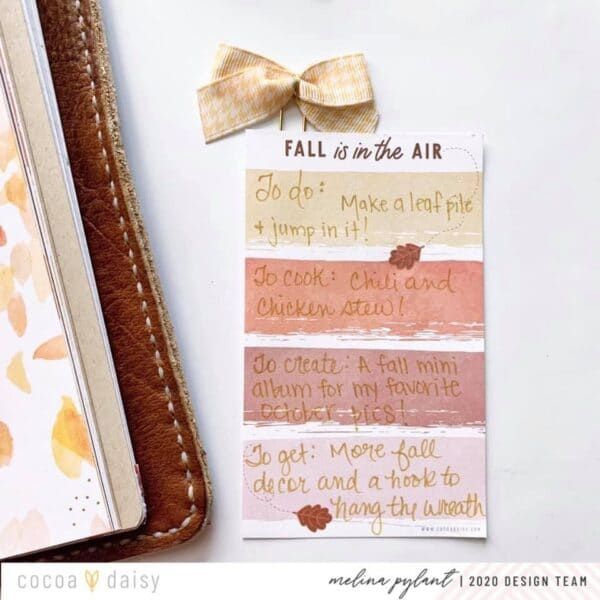 FALL is in the AIR
To do: Make a leaf pile
+ jump in it!
To cook: Chili and
Chicken stew!
To create: A fall mini
album for my favorite
October pics!
To get: More fall
decor and a hook to
hang the wreath
WWW.COCOADAISY.COM
cocoa daisy
melina pylant | 2020 DESIGN TEAM